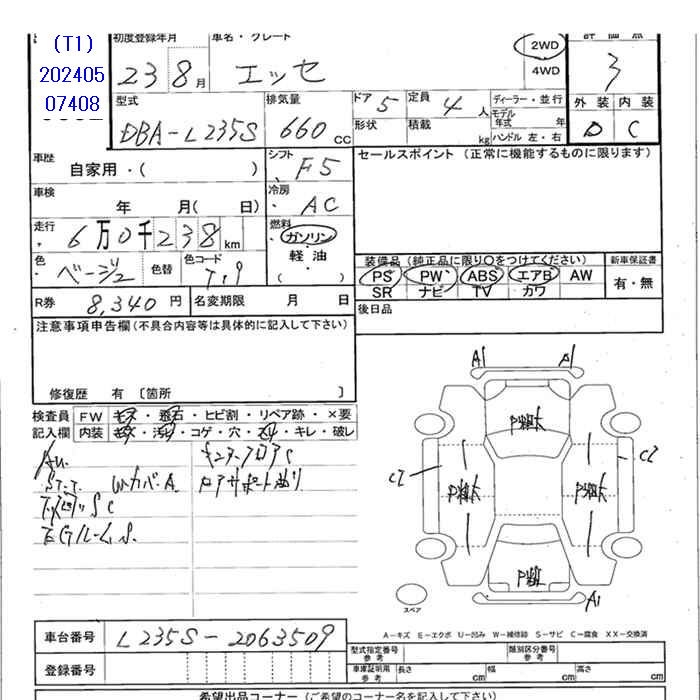 (T1)
202405
07408
初度登録年月 車名・グレード
23 8月 エッセ
2WD
4WD
評価点
3
外装 内装
D C
型式 排気量 ドア 5 定員 4人 ディーラー・並行
モデル年式 年
DBA-L235S 660cc 形状 積載 kg ハンドル 左・右
車歴 自家用・( )
シフト F5
セールスポイント (正常に機能するものに限ります)
車検 年 月( 日)
冷房 AC
走行 6万0千238km
燃料 ガソリン
軽油
( )
色 ベージュ 色替 色コード T19
装備品 (純正品に限り○をつけてください) 新車保証書
PS PW ABS エアB AW 有・無
SR ナビ TV カワ
R券 8,340円 名変期限 月 日
後日品
注意事項申告欄(不具合内容等は具体的に記入して下さい)
修復歴 有〔箇所 〕
検査員 FW キズ・飛石・ヒビ割・リペア跡・×要
記入欄 内装 キズ・汚れ・コゲ・穴・スレ・キレ・破レ
A1 A1
C2 C2
A1
スペア
A-キズ E-エクボ U-凹み W-補修跡 S-サビ C-腐食 XX-交換済
車台番号 L235S-2063509
登録番号
型式指定番号 参考 類別区分番号 参考
車庫証明用 参考 長さ cm 幅 cm 高さ cm
希望出品コーナー(ご希望のコーナー名を記入して下さい)